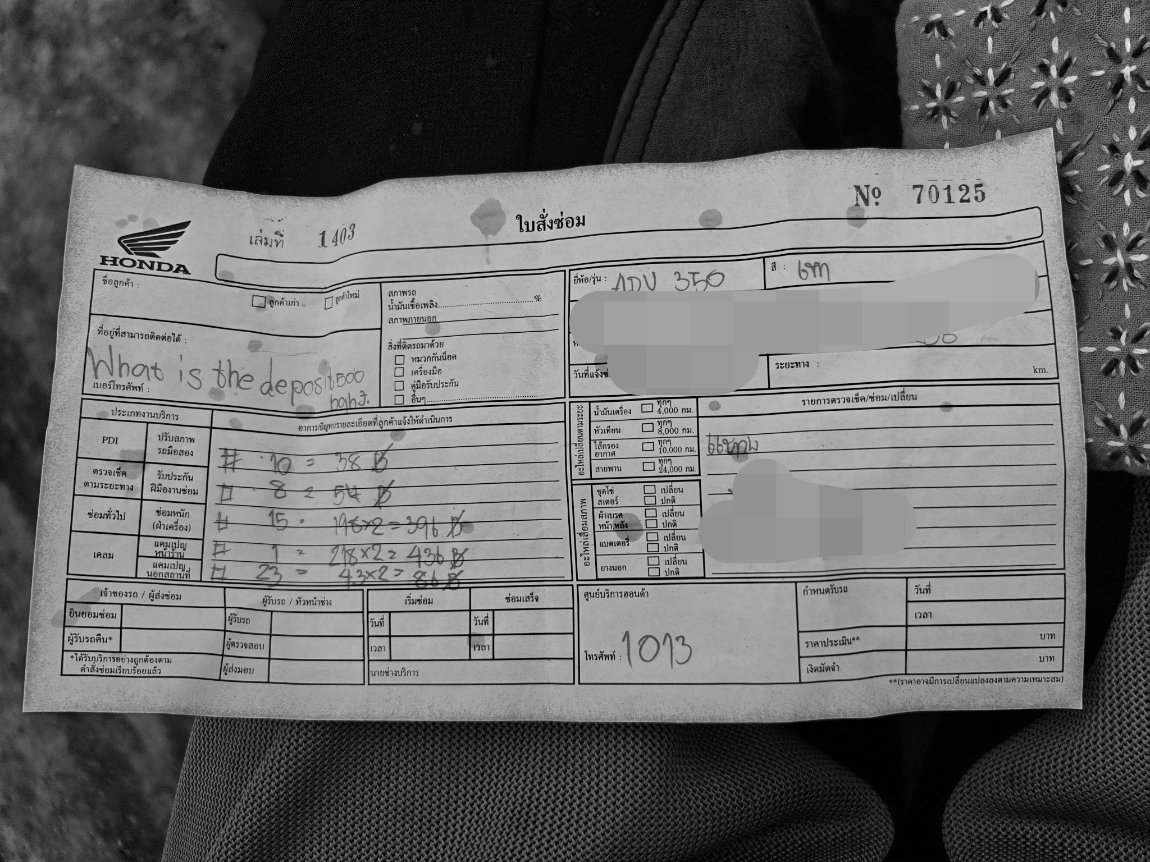 เล่มที่ 1403
ใบสั่งซ่อม
Nº 70125
HONDA
ชื่อลูกค้า :
ลูกค้าเก่า ลูกค้าใหม่
ที่อยู่ที่สามารถติดต่อได้ :
What is the deposit 500
baht.
เบอร์โทรศัพท์ :
สภาพรถ
น้ำมันเชื้อเพลิง %
สภาพภายนอก
สิ่งที่ติดรถมาด้วย
หมวกกันน็อค
เครื่องมือ
คู่มือรับประกัน
อื่นๆ
ยี่ห้อ/รุ่น : ADV 350
สี : เทา
วันที่แจ้งซ่
ระยะทาง : km.
ประเภทงานบริการ
PDI
ปรับสภาพ
รถมือสอง
ตรวจเช็ค
ตามระยะทาง
รับประกัน
ฝีมืองานซ่อม
ซ่อมทั่วไป
ซ่อมหนัก
(ผ่าเครื่อง)
เคลม
แคมเปญ
หน้าร้าน
แคมเปญ
นอกสถานที่
อาการ/ปัญหา/รายละเอียดที่ลูกค้าแจ้งให้ดำเนินการ
# 10 = 38 ฿
# 8 = 54 ฿
# 15 = 198x2 = 396 ฿
# 1 = 218x2 = 436 ฿
# 23 = 43x2 = 86 ฿
อะไหล่เปลี่ยนตามระยะ
น้ำมันเครื่อง ทุกๆ 4,000 กม.
หัวเทียน ทุกๆ 8,000 กม.
ไส้กรองอากาศ ทุกๆ 10,000 กม.
สายพาน ทุกๆ 24,000 กม.
อะไหล่เสื่อมสภาพ
ชุดโซ่สเตอร์ เปลี่ยน ปกติ
ผ้าเบรคหน้า,หลัง เปลี่ยน ปกติ
แบตเตอรี่ เปลี่ยน ปกติ
ยางนอก เปลี่ยน ปกติ
รายการตรวจเช็ค/ซ่อม/เปลี่ยน
เจ้าของรถ / ผู้ส่งซ่อม
ยินยอมซ่อม
ผู้รับรถคืน*
*ได้รับบริการอย่างถูกต้องตาม
คำสั่งซ่อมเรียบร้อยแล้ว
ผู้รับรถ / หัวหน้าช่าง
ผู้รับรถ
ผู้ตรวจสอบ
ผู้ส่งมอบ
เริ่มซ่อม ซ่อมเสร็จ
วันที่ วันที่
เวลา เวลา
นายช่างบริการ
ศูนย์บริการฮอนด้า
โทรศัพท์ : 1013
กำหนดรับรถ
วันที่
เวลา
ราคาประเมิน** บาท
เงินมัดจำ บาท
**(ราคาอาจมีการเปลี่ยนแปลงลงตามความเหมาะสม)